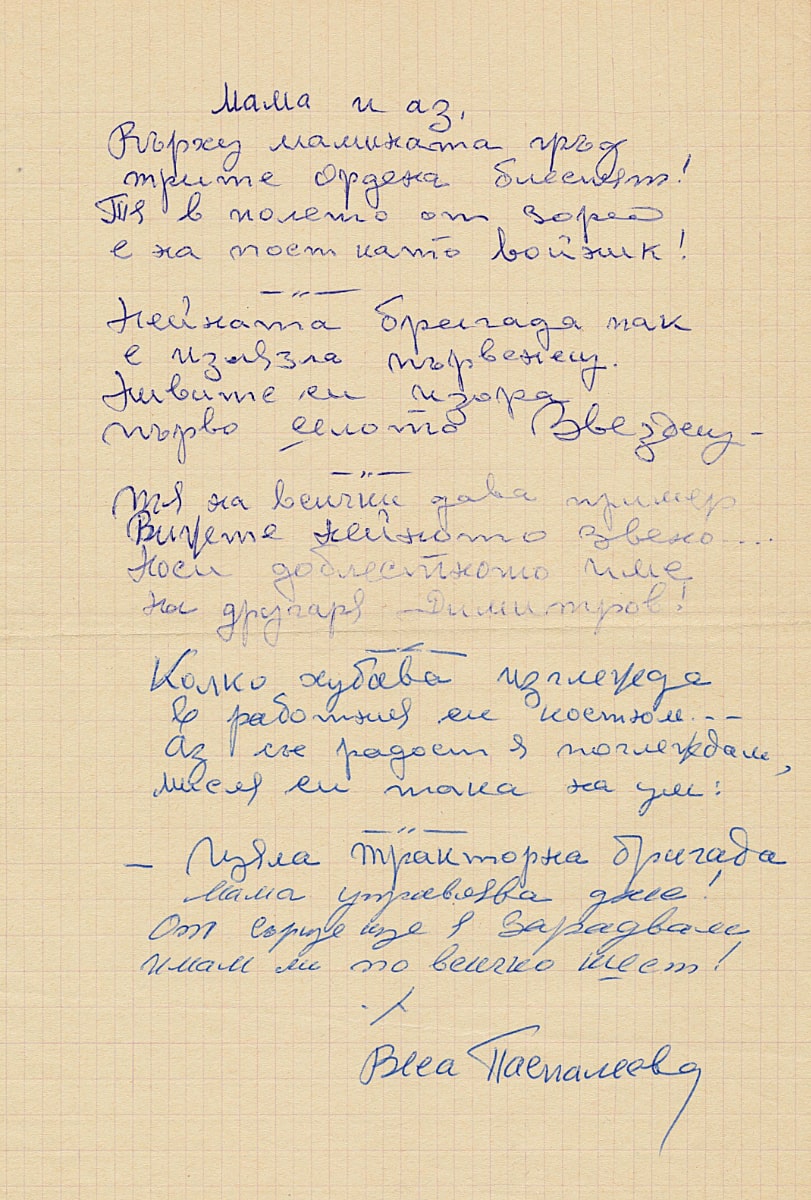 Мама и аз.
Върху мамината гръд
трите ордена блестят!
Тя в полето от зори
е на пост като войник!
— " —
Нейната бригада пак
е излязла първенец.
Нивите си изора
първо селото Звездец –
— " —
Тя на всички дава пример
Вижте нейното звено...
Носи доблестното име
на другаря Димитров!
— " —
Колко хубава изглежда
в работния си костюм...
Аз със радост я поглеждам,
мисля си така на ум:
— " —
– Цяла тракторна бригада
мама управлява дне!
От сърце ще я зарадвам
имам ли по всичко шест!
Веса Паспалеева